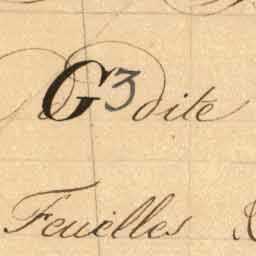 G3 dite
Feuilles